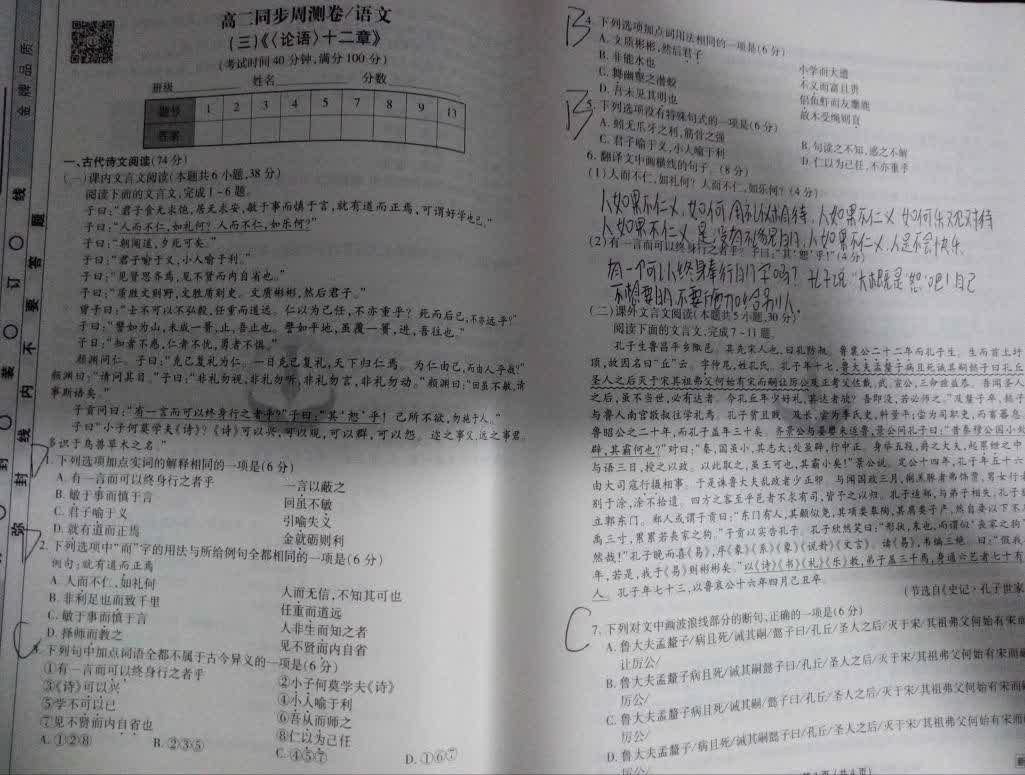 金牌品质
高二同步周测卷/语文
(三)《〈论语〉十二章》
(考试时间40分钟,满分100分)
班级 姓名 分数
题号 1 2 3 4 5 7 8 9 13
答案
一、古代诗文阅读(74分)
(一)课内文言文阅读(本题共6小题,38分)
阅读下面的文言文,完成1-6题。
子曰:“君子食无求饱,居无求安,敏于事而慎于言,就有道而正焉,可谓好学也已。”
子曰:“人而不仁,如礼何?人而不仁,如乐何?”
子曰:“朝闻道,夕死可矣。”
子曰:“君子喻于义,小人喻于利。”
子曰:“见贤思齐焉,见不贤而内自省也。”
子曰:“质胜文则野,文胜质则史。文质彬彬,然后君子。”
曾子曰:“士不可以不弘毅,任重而道远。仁以为己任,不亦重乎?死而后已,不亦远乎?”
子曰:“譬如为山,未成一篑,止,吾止也。譬如平地,虽覆一篑,进,吾往也。”
子曰:“知者不惑,仁者不忧,勇者不惧。”
颜渊问仁。子曰:“克己复礼为仁。一日克己复礼,天下归仁焉。为仁由己,而由人乎哉?”
颜渊曰:“请问其目。”子曰:“非礼勿视,非礼勿听,非礼勿言,非礼勿动。”颜渊曰:“回虽不敏,请
事斯语矣。”
子贡问曰:“有一言而可以终身行之者乎?”子曰:“其‘恕’乎!己所不欲,勿施于人。”
子曰:“小子何莫学夫《诗》?《诗》可以兴,可以观,可以群,可以怨。迩之事父,远之事君。
多识于鸟兽草木之名。”
1.下列选项加点实词的解释相同的一项是(6分)
A.有一言而可以终身行之者乎 一言以蔽之
B.敏于事而慎于言 回虽不敏
C.君子喻于义 引喻失义
D.就有道而正焉 金就砺则利
2.下列选项中“而”字的用法与所给例句全都相同的一项是(6分)
例句:就有道而正焉
A.人而不仁,如礼何 人而无信,不知其可也
B.非利足也而致千里 任重而道远
C.敏于事而慎于言 人非生而知之者
D.择师而教之 见不贤而内自省
3.下列句中加点词语全都不属于古今异义的一项是(6分)
①有一言而可以终身行之者乎 ②小子何莫学夫《诗》
③《诗》可以兴 ④小人喻于利
⑤学不可以已 ⑥吾从而师之
⑦见不贤而内自省也 ⑧仁以为己任
A.①②⑧ B.②③⑤ C.④⑤⑦ D.①⑥⑦
B
4.下列选项加点词用法相同的一项是(6分)
A.文质彬彬,然后君子 小学而大遗
B.非能水也 不义而富且贵
C.舞幽壑之潜蛟 侣鱼虾而友麋鹿
D.吾未见其明也 故木受绳则直
B
5.下列选项没有特殊句式的一项是(6分)
A.蚓无爪牙之利,筋骨之强 B.句读之不知,惑之不解
C.君子喻于义,小人喻于利 D.仁以为己任,不亦重乎
6.翻译文中画横线的句子。(8分)
(1)人而不仁,如礼何?人而不仁,如乐何?(4分)
人如果不仁义,如何用礼仪相待,人如果不仁义如何乐观对待
人如果不仁义是没有礼貌的,人如果不仁义,人是不会快乐.
(2)有一言而可以终身行之者乎?子曰:“其‘恕’乎!”(4分)
有一个可以终身奉行的字吗?孔子说“大概是‘恕’吧!自己
不想要的,不要施加给别人
(二)课外文言文阅读(本题共5小题,30分)
阅读下面的文言文,完成7-11题。
孔子生鲁昌平乡陬邑。其先宋人也,曰孔防叔。鲁襄公二十二年而孔子生。生而首上圩
顶,故因名曰“丘”云。字仲尼,姓孔氏。孔子年十七,鲁大夫孟釐子病且死诫其嗣懿子曰孔丘
圣人之后灭于宋其祖弗父何始有宋而嗣让厉公及正考父佐戴、武、宣公,三命兹益恭。吾闻圣人
之后,虽不当世,必有达者。今孔丘年少好礼,其达者欤?吾即没,若必师之。”及釐子卒,懿子
与鲁人南宫敬叔往学礼焉。孔子贫且贱。及长,尝为季氏史,料量平;尝为司职吏,而畜蕃息。
鲁昭公之二十年,而孔子盖年三十矣。齐景公与晏婴来适鲁,景公问孔子曰:“昔秦穆公国小处
辟,其霸何也?”对曰:“秦,国虽小,其志大;处虽辟,行中正。身举五羖,爵之大夫,起累绁之中,
与语三日,授之以政。以此取之,虽王可也,其霸小矣!”景公说。定公十四年,孔子年五十六,
由大司寇行摄相事。于是诛鲁大夫乱政者少正卯。与闻国政三月,粥羔豚者弗饰贾,男女行者
别于涂,涂不拾遗。四方之客至乎邑者不求有司,皆予之以归。孔子适郑,与弟子相失,孔子独
立郭东门。郑人或谓子贡曰:“东门有人,其颡似尧,其项类皋陶,其肩类子产,然自要以下不及
禹三寸,累累若丧家之狗。”子贡以实告孔子。孔子欣然笑曰:“形状,末也,而谓似‘丧家之狗’,
然哉!”孔子晚而喜《易》,序《彖》《系》《象》《说卦》《文言》。读《易》,韦编三绝。曰:“假我数
年,若是,我于《易》则彬彬矣。”以《诗》《书》《礼》《乐》教,弟子盖三千焉,身通六艺者七十有二
人。孔子年七十三,以鲁哀公十六年四月己丑卒。
(节选自《史记·孔子世家
C
7.下列对文中画波浪线部分的断句,正确的一项是(6分)
A.鲁大夫孟釐子/病且死/诫其嗣/懿子曰/孔丘/圣人之后/灭于宋/其祖弗父何始有宋而嗣
让厉公/
B.鲁大夫孟釐子/病且死/诫其嗣懿子曰/孔丘/圣人之后/灭于宋/其祖弗父何始有宋而嗣
厉公/
C.鲁大夫孟釐子病且死/诫其嗣懿子曰/孔丘/圣人之后/灭于宋/其祖弗父何始有宋而
厉公/
D.鲁大夫孟釐子/病且死/诫其嗣懿子曰/孔丘/圣人之后/灭于宋/其祖弗父何始有宋而
厉公/
弥封线内不要答题
装订线